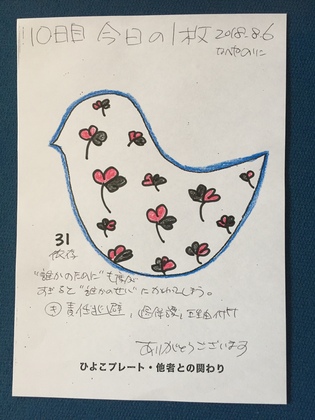 110日目 今日の1枚 2018.8.6
31
依存
"誰かのために"も度が
すぎると"誰かのせい"にかわってしまう。
責任逃避、保護、理由付け
ありがとうございます
ひよこプレート・他者との関わり